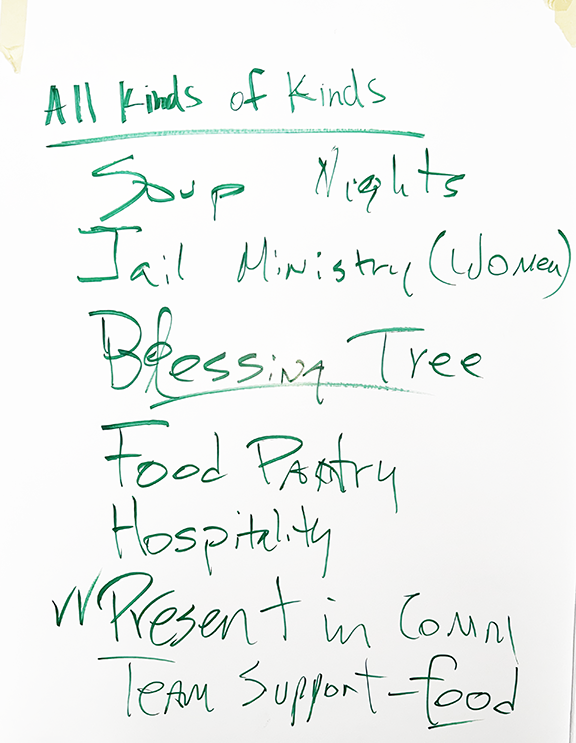 All Kinds of Kinds
Soup Nights
Jail Ministry (Women)
Blessing Tree
Food Pantry
Hospitality
Present in
Team Support - food